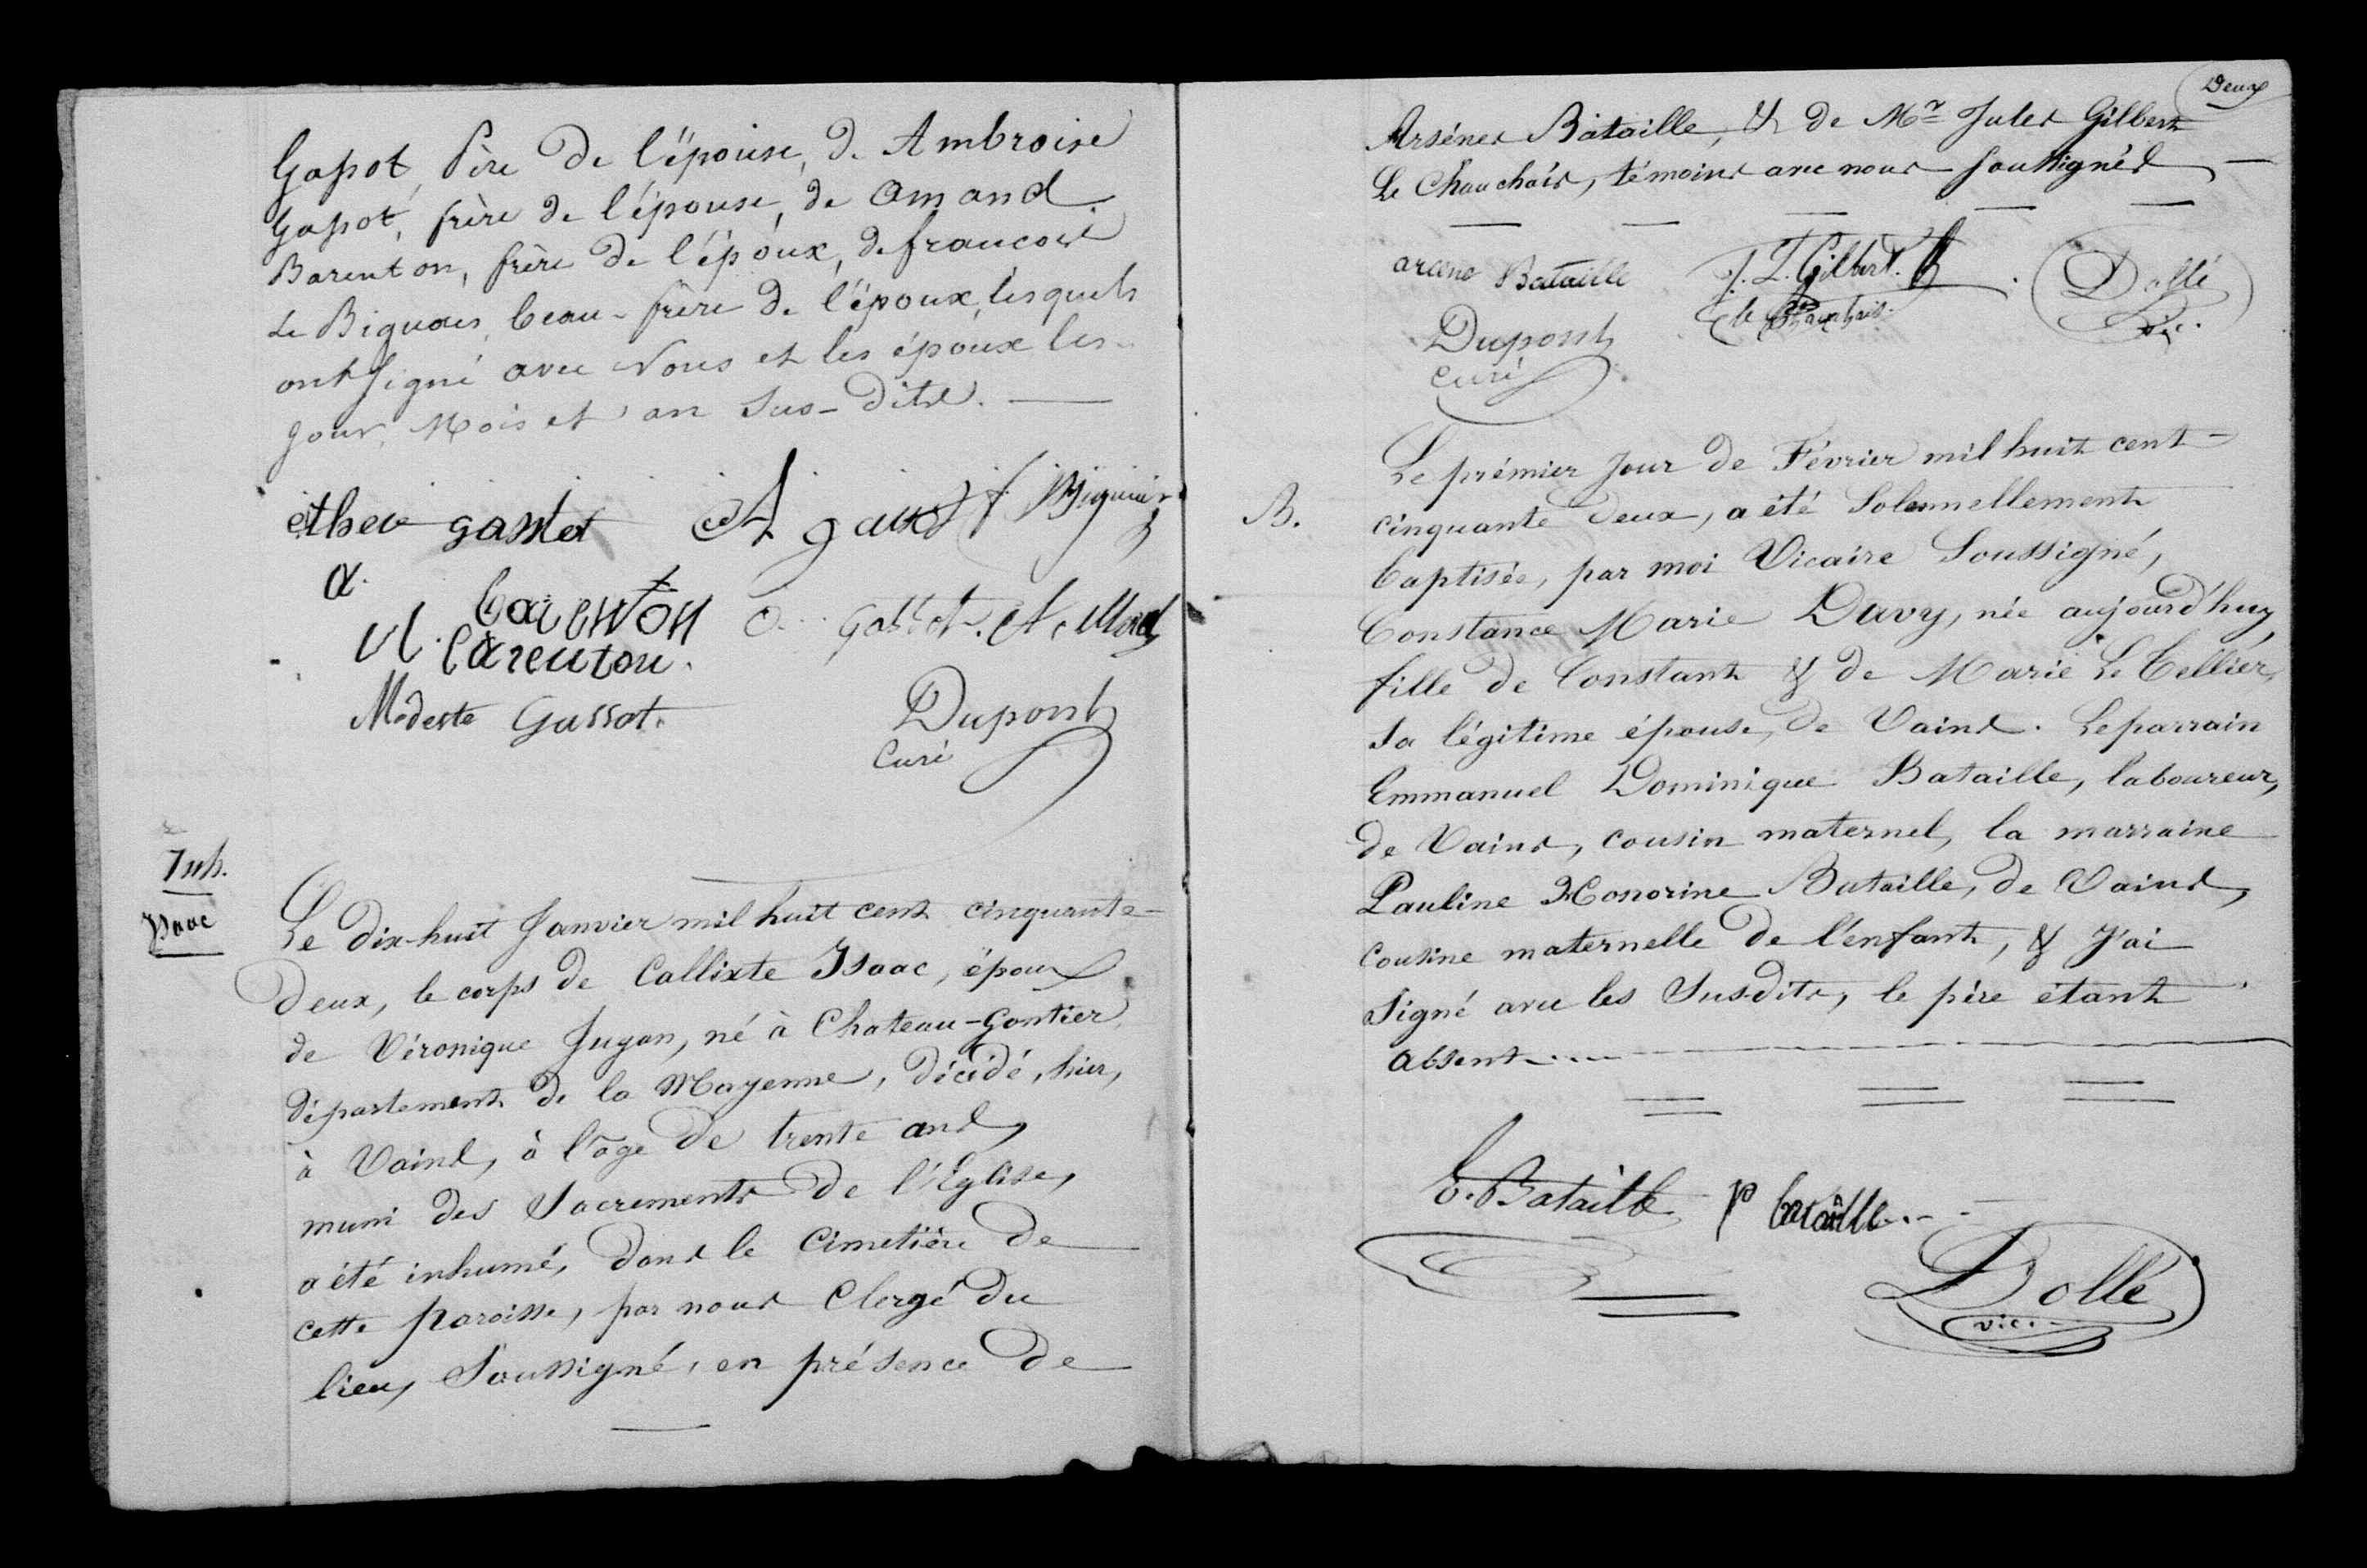 Gassot, Père de l'épouse, de Ambroise
Gassot, frère de l'épouse, de Amand
Barenton, frère de l'époux, de francois
Le Biguais, beau-frère de l'époux, lesquels
ont signé avec Nous et les époux les
jour, Mois et an Sus-dits.
gassot
A
a.
barenton
barenton.
Modeste Gassot.
Dupont
Curé
Inh.
Isaac
Le dix-huit Janvier mil huit cent cinquante-
deux, le corps de Callixte Isaac, époux
de Véronique Juyon, né à Chateau-Gontier
département de la Mayenne, décédé, hier,
à Vains, à l'âge de trente ans,
muni des Sacrements de l'Eglise,
a été inhumé, dans le Cimetière de
cette Paroisse, par nous Clergé du
lieu, Soussigné, en présence de
Deux
Arsénes Bataille, & de Mr Jules Gilbert
Le Chauchais, témoins avec nous soussignés
arcene Bataille
J. L. Gilbert.
Dollé
vic.
Dupont
curé
B.
Le prémier Jour de Février mil huit cent
cinquante deux, a été Solemnellement
baptisée, par moi Vicaire Soussigné,
Constance Marie Davy, née aujourd'huy,
fille de Constant & de Marie Le Tellier,
sa légitime épouse, de Vains. Le parrain
Emmanuel Dominique Bataille, laboureur,
de Vains, cousin maternel, la marraine
Pauline Honorine Bataille, de Vains,
cousine maternelle de l'enfant, & J'ai
Signé avec les Susdits, le père étant
absent
E. Bataille
P bataille
Dollé
vic.